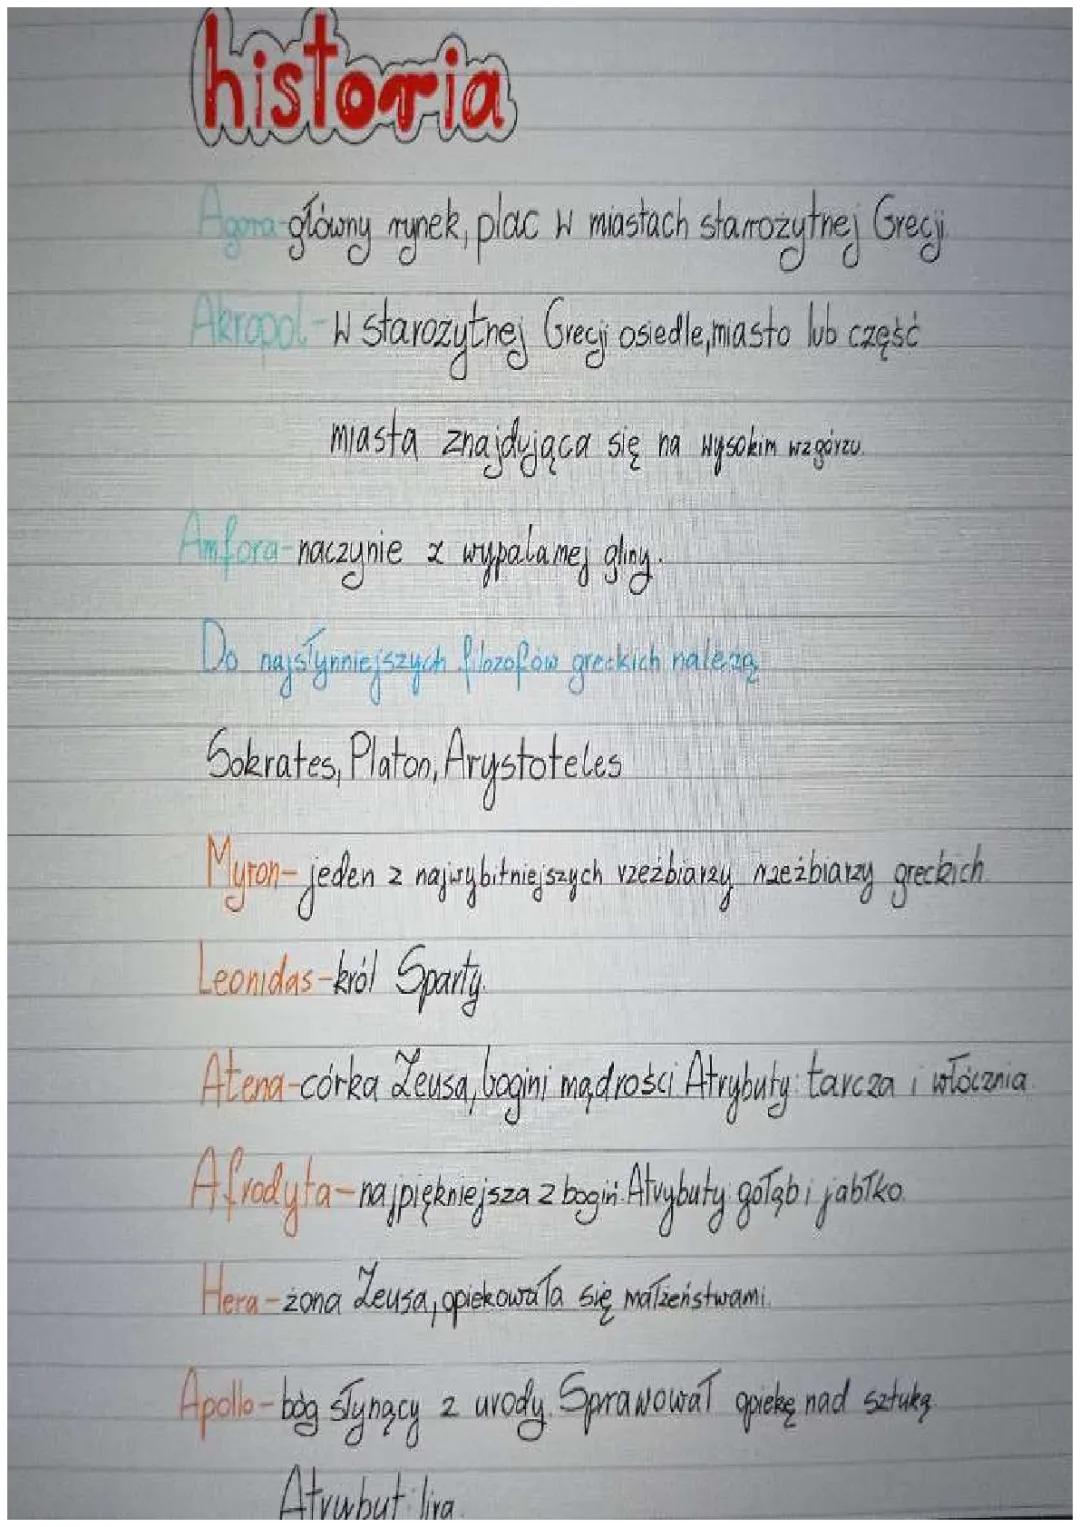 historia
Agora-główny rynek, plac w miastach starożytnej Grecji.
Akropol-w starożytnej Grecji osiedle, miasto lub część
miasta znajdująca się na wysokim wzgórzu.
Amfora-naczynie z wypalanej gliny.
Do najsłynniejszych filozofów greckich należą
Sokrates, Platon, Arystoteles
Myron-jeden z najwybitniejszych rzeźbiarzy rzeźbiarzy greckich.
Leonidas-król Sparty.
Atena-córka Zeusa, bogini mądrości. Atrybuty: tarcza i włócznia.
Afrodyta-najpiękniejsza z bogiń. Atrybuty gołąb i jabłko.
Hera-żona Zeusa, opiekowała się małżeństwami.
Apollo-bóg słynący z urody. Sprawował opiekę nad sztuką.
Atrybut: lira.